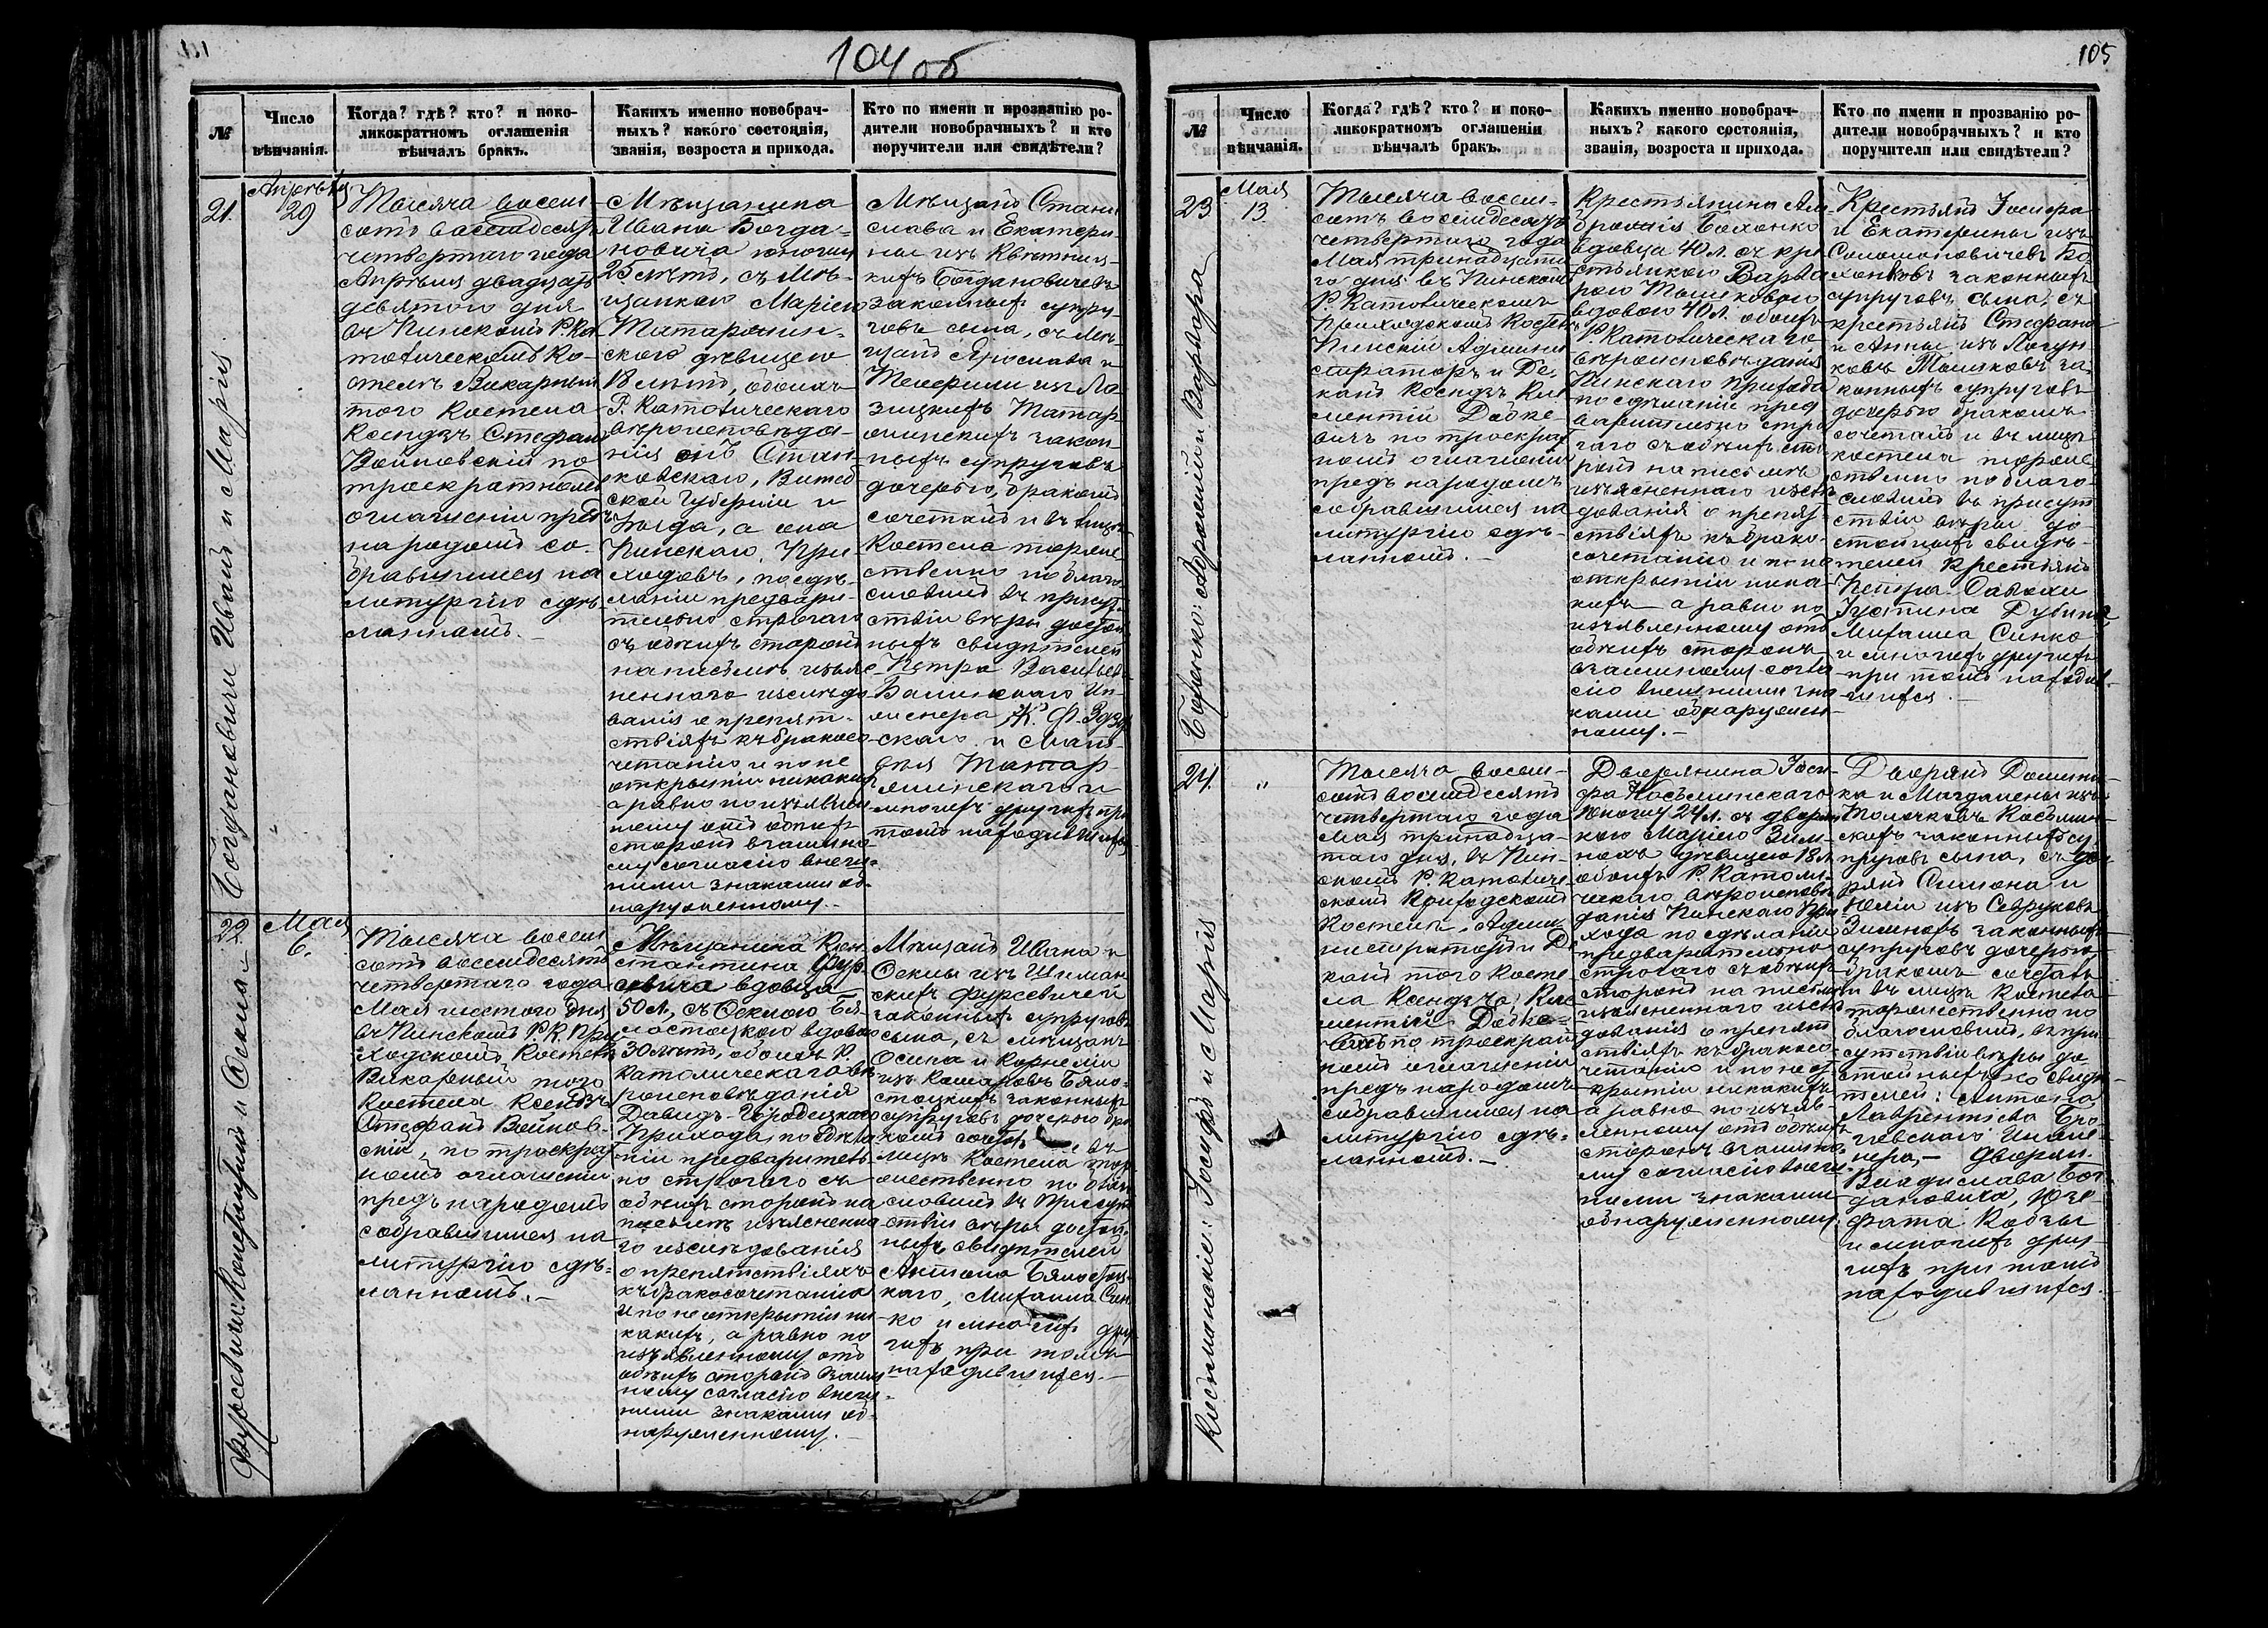 104 об
№
Число
вѣнчанія.
Когда? гдѣ? кто? и поко-
ликократномъ оглашеніи
вѣнчалъ бракъ.
Какихъ именно новобрач-
ныхъ? какого состоянія,
званія, возроста и прихода.
Кто по имени и прозванію ро-
дители новобрачныхъ? и кто
поручители или свидѣтели?
21.
Апрѣля
29
Богдановичи Иванъ и Марія
Тысяча восемь
сотъ восемдесятъ
четвертаго года
Апрѣля двадцать
девятого дня
въ Пинскомъ Р. Ка
толическомъ Ко-
стелѣ Викарный
того Костела
Ксендзъ Стефанъ
Войновскій по
троекратномъ
оглашеніи предъ
народомъ со-
бравшимся на
литургію сдѣ-
ланномъ.
Мѣщанина
Ивана Богда-
новича юношу
25 лѣтъ, съ Мѣ-
щанкою Маріею
Татаржин-
скою дѣвицею
18 лѣтъ, обоихъ
Р. Католическаго
вѣроисповѣда-
нія онъ
Витеб
ской Губерніи и
уѣзда, а она
Пинскаго При
ходовъ, по сдѣ-
ланіи предвари-
тельно строгаго
съ обоихъ сторонъ
на письмѣ изъяс
неннаго изслѣдо
ванія о препят-
ствіяхъ къ бракосо
четанію и по не
открытіи никакихъ
а равно по изъявлен
ному отъ обоихъ
сторонъ взаимно
му согласію внеш-
ними знаками об-
наруженному.
Мѣщанъ Стани
слава и Екатери-
ны изъ Квятнич-
кихъ Богдановичевъ
законныхъ супру-
говъ сына, съ Мѣ-
щанъ Ярослава и
изъ Ло-
зицкихъ Татар
жинскихъ закон
ныхъ супруговъ
дочерью, бракомъ
сочеталъ и въ лицѣ
Костела торже
ственно по благо
словилъ въ присут
ствіи вѣры достой
ныхъ свидѣтелей
Петра
Ин-
женера Ж. Ф.
скаго и
Татар
жинскаго и
многихъ другихъ при
томъ находившихся
22.
Мая
6.
Фурсевичи Константинъ и Фекла
Тысяча восемь
сотъ восемдесятъ
четвертаго года
Мая шестого дня
въ Пинскомъ Р. К. При
ходскомъ Костелѣ
Викарный того
Костела Ксендзъ
Стефанъ Войнов-
скій, по троекрат
номъ оглашеніи
предъ народомъ
собравшимся на
литургію сдѣ-
ланномъ.
Мѣщанина Кон
стантина Фур-
севича вдовца
50 л., съ Феклою Бя
лостоцкою вдовою
30 лѣтъ, обоихъ Р.
Католическаго вѣ
роисповѣданія
Давидъ-Городецкаго
Прихода, по сдѣла
ніи предваритель
но строгаго съ
обоихъ сторонъ на
письмѣ изъясненна
го изслѣдованія
о препятствіяхъ
къ бракосочетанію
и по не открытіи ни
какихъ, а равно по
изъявленному отъ
обоихъ сторонъ взаим
ному согласію внеш-
ними знаками об-
наруженному.
Мѣщанъ Ивана и
Феклы изъ Шиман
скихъ Фурсевичей
законныхъ супруговъ
сына, съ мѣщанъ
Осипа и Корнеліи
изъ Комаровъ Бяло-
стоцкихъ законныхъ
супруговъ дочерью бра
комъ сочеталъ и въ
лицѣ Костела тор
жественно по благо
словилъ въ присут
ствіи вѣры достой-
ныхъ свидѣтелей
Антона Бялостоц-
каго, Михаила Син
ко и многихъ дру
гихъ при томъ
находившихся.
105
№
Число
вѣнчанія.
Когда? гдѣ? кто? и поко-
ликократномъ оглашеніи
вѣнчалъ бракъ.
Какихъ именно новобрач-
ныхъ? какого состоянія,
званія, возроста и прихода.
Кто по имени и прозванію ро-
дители новобрачныхъ? и кто
поручители или свидѣтели?
23
Мая
13
Боханко: Амброжій и Варвара
Тысяча восемь-
сотъ восемдесятъ
четвертаго года
Мая тринадцата
го дня въ Пинскомъ
Р. Католическомъ
Приходскомъ Костелѣ
Пинскій Админи
страторъ и Де-
канъ Ксендзъ Кле
ментій Додке-
вичъ по троекрат
номъ оглашеніи
предъ народомъ
собравшимся на
литургію сдѣ-
ланномъ.
Крестьянина Ам
брожія Боханко
вдовца 40 л. съ кре
стьянкою Варва
рою Тышковою
вдовою 40 л. обоихъ
Р. Католическаго
вѣроисповѣданія
Пинскаго Прихода
по сдѣланіи пред
варительно стро
гаго съ обоихъ сто
ронъ на письмѣ
изъясненнаго изслѣ
дованія о препят
ствіяхъ къ брако-
сочетанію и по не
открытіи ника-
кихъ а равно по
изъявленному отъ
обоихъ сторонъ
взаимному согла
сію внешними зна
ками обнаружен-
ному.
Крестьянъ Іосифа
и Екатерины изъ
Соломоновичевъ Бо
ханковъ законныхъ
супруговъ сына, съ
крестьянъ Стефана
и Анны изъ Логун
ковъ Тышковъ за
конныхъ супруговъ
дочерью бракомъ
сочеталъ и въ лицѣ
костела торже
ственно по благо-
словилъ въ присут
ствіи вѣры до-
стойныхъ свидѣ-
телей Крестьянъ
Петра
Густина
Михаила Синко
и многихъ другихъ
при томъ находив-
шихся.
24.
"
Косьминскіе: Іосифъ и Марія
Тысяча восемь-
сотъ восемдесятъ
четвертаго года
Мая тринадца-
таго дня, въ Пин-
скомъ Р. Католиче-
скомъ Приходскомъ
Костелѣ, Адми-
нистраторъ и Де
канъ того Косте
ла Ксендзъ Кле
ментій Додке-
вичъ по троекрат
номъ оглашеніи
предъ народомъ
собравшимся на
литургію сдѣ-
ланномъ.
Дворянина Іоси
фа Косьминскаго
юношу 24 л. съ дворян
кою Маріею Зим-
нохъ дѣвицею 18 л.
обоихъ Р. Католи-
ческаго вѣроисповѣ
данія Пинскаго При
хода по сдѣланіи
предварительно
строгаго съ обоихъ
сторонъ на письмѣ
изъясненнаго изслѣ
дованія о препят
ствіяхъ къ бракосо
четанію и по неот
крытіи никакихъ
а равно по изъяв-
ленному отъ обоихъ
сторонъ взаимно
му согласію внеш-
ними знаками
обнаруженному.
Дворянъ Домини-
ка и Магдалены изъ
Толочковъ Косьмин-
скихъ законныхъ су
пруговъ сына, съ дво
рянъ Симона и
Юліи изъ Севруковъ
Зимнохъ законныхъ
супруговъ дочерью
бракомъ сочеталъ
и въ лицѣ Костела
торжественно по
благословилъ, въ при
сутствіи вѣры до
стойныхъ свидѣ-
телей: Антона
Лаврентіева
Инже-
нера, – дворян.
Владислава Бог
дановича, Юзе
фата
и многихъ дру-
гихъ при томъ
находившихся.